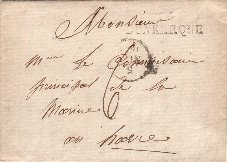 Monsieur
DUNKERQUE
Monsr le Commissaire
principal de la
Marine
6
au havre